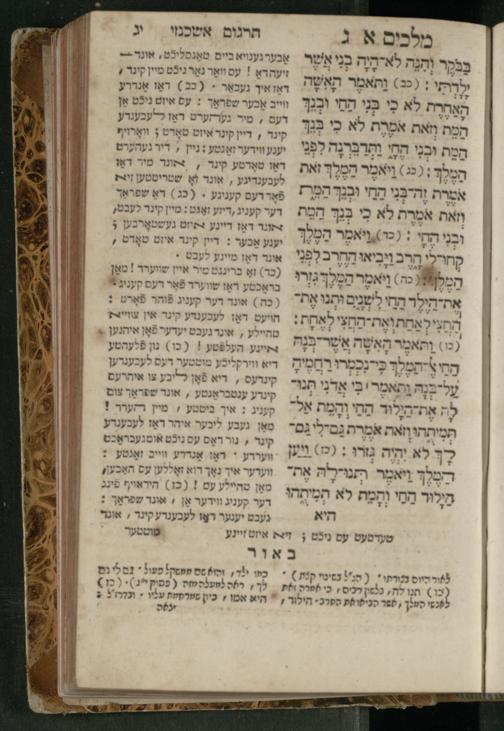 מלכים א ג
תרגום אשכנזי יג
בַּבֹּקֶר וְהִנֵּה לֹא־הָיָה בְנִי אֲשֶׁר
יָלָדְתִּי׃ (כב) וַתֹּאמֶר הָאִשָּׁה
הָאַחֶרֶת לֹא כִי בְּנִי הַחַי וּבְנֵךְ
הַמֵּת וְזֹאת אֹמֶרֶת לֹא כִי בְּנֵךְ
הַמֵּת וּבְנִי הֶחָי וַתְּדַבֵּרְנָה לִפְנֵי
הַמֶּלֶךְ׃ (כג) וַיֹּאמֶר הַמֶּלֶךְ זֹאת
אֹמֶרֶת זֶה־בְּנִי הַחַי וּבְנֵךְ הַמֵּת
וְזֹאת אֹמֶרֶת לֹא כִי בְּנֵךְ הַמֵּת
וּבְנִי הֶחָי׃ (כד) וַיֹּאמֶר הַמֶּלֶךְ
קְחוּ־לִי חָרֶב וַיָּבִיאוּ הַחֶרֶב לִפְנֵי
הַמֶּלֶךְ׃ (כה) וַיֹּאמֶר הַמֶּלֶךְ גִּזְרוּ
אֶת־הַיֶּלֶד הַחַי לִשְׁנָיִם וּתְנוּ אֶת־
הַחֲצִי לְאַחַת וְאֶת־הַחֲצִי לְאֶחָת׃
(כו) וַתֹּאמֶר הָאִשָּׁה אֲשֶׁר־בְּנָהּ
הַחַי אֶל־הַמֶּלֶךְ כִּי־נִכְמְרוּ רַחֲמֶיהָ
עַל־בְּנָהּ וַתֹּאמֶר בִּי אֲדֹנִי תְּנוּ־
לָהּ אֶת־הַיָּלוּד הַחַי וְהָמֵת אַל־
תְּמִיתֻהוּ וְזֹאת אֹמֶרֶת גַּם־לִי גַם־
לָךְ לֹא יִהְיֶה גְּזֹרוּ׃ (כז) וַיַּעַן
הַמֶּלֶךְ וַיֹּאמֶר תְּנוּ־לָהּ אֶת־
הַיָּלוּד הַחַי וְהָמֵת לֹא תְמִיתֻהוּ
היא
אבער גענויא ביים טאגסליכט, אונד
זיעה דא! עם וואר גאר ניכט מיין קינד,
דאז איך געבאר. (כב) דאז אנדרע
ווייב אבער שפראך: עס איזט ניכט אן
דעם, מיר געהערט דאז לעבענדע
קינד, דיין קינד איזט טאדט; ווארויף
יענע ווידער זאגטע: ניין, דיר געהערט
דאז טאדטע קינד, אונד מיר דאז
לעבענדיגע, אונד זא שטריטטען זיא
פאר דעם קעניגע. (כג) דא שפראך
דער קעניג, דיזע זאגט: מיין קינד לעבט,
אונד דאז דיינע איזט געשטארבען;
יענע אבער: דיין קינד איזט טאדט,
אונד דאז מיינע לעבט.
(כד) זא ברינגט מיר איין שווערד! מאן
בראכטע דאז שווערד פאר דעם קעניג.
(כה) אונד דער קעניג פוהר פארט:
הויעט דאז לעבענדע קינד אין צווייא
טהיילע, אונד געבט יעדער פאן איהנען
איינע העלפטע! (כו) נון פלעהטע
דיא ווירקליכע מוטטער דעם לעבענדען
קינדעס, דיא פאן ליבע צו איהרעם
קינדע ענטבראנטע, אונד שפראך צום
קעניג: איך ביטטע, מיין הערר!
מאן געבע ליבער איהר דאז לעבענדע
קינד, נור דאס עס ניכט אומגעבראכט
ווערדע. דאז אנדרע ווייב זאגטע:
וועדער איך נאך דוא זאללען עס האבען,
מאן טהיילע עס! (כז) היראויף פינג
דער קעניג ווידער אן, אונד שפראך:
געבט יענער דאז לעבענדע קינד, אונד
טעדטעט עס ניכט; זיא איזט זיינע מוטטער
באור